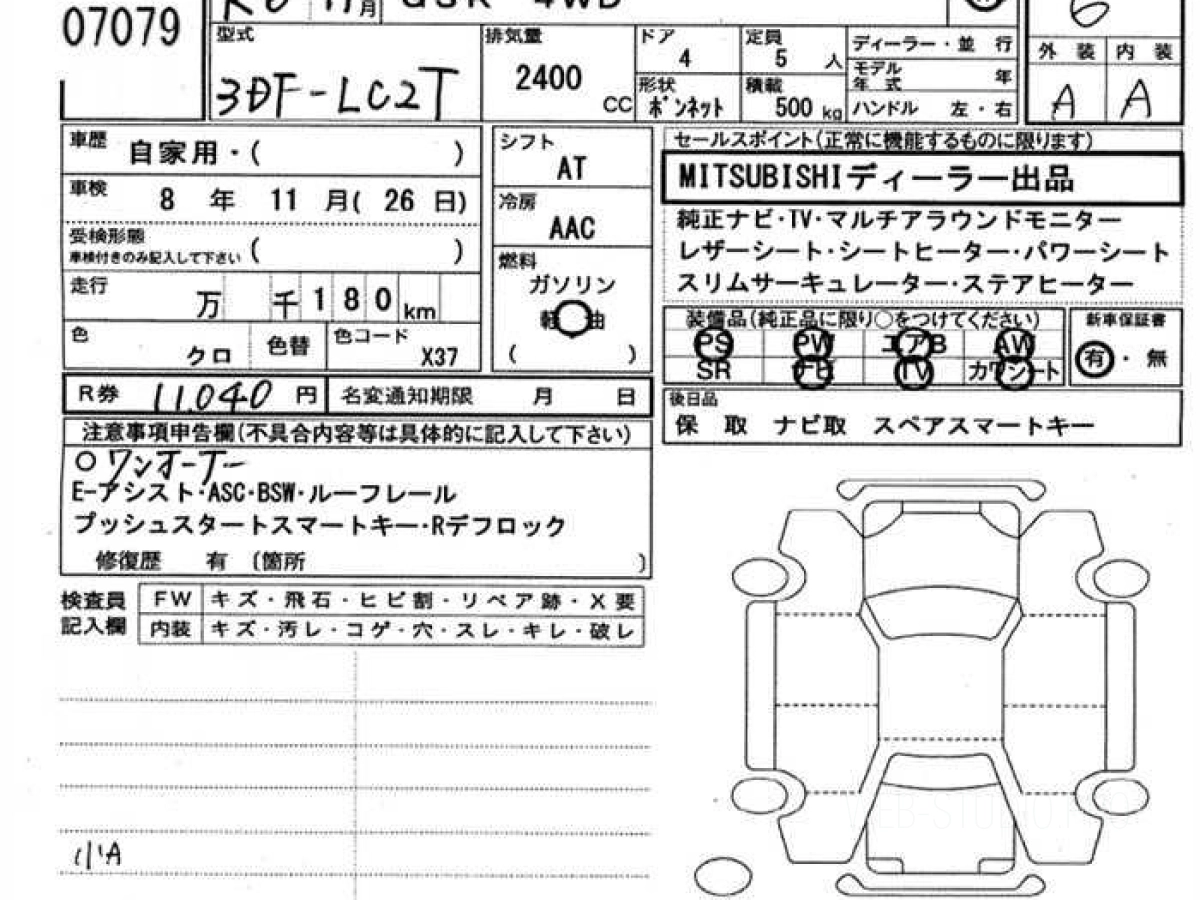 07079
R6 11月 GSR 4WD
型式 3DF-LC2T
排気量 2400 CC
ドア 4
定員 5 人
形状 ボンネット
積載 500 kg
ディーラー・並 行
モデル年式 年
ハンドル 左・右
6
外 装 内 装
A A
車歴 自家用・( )
車検 8 年 11 月( 26 日)
受検形態 ( )
車検付きのみ記入して下さい
走行 万 千 1 8 0 km
色 クロ 色替 色コード X37
シフト AT
冷房 AAC
燃料 ガソリン
軽 油
( )
セールスポイント(正常に機能するものに限ります)
MITSUBISHIディーラー出品
純正ナビ・TV・マルチアラウンドモニター
レザーシート・シートヒーター・パワーシート
スリムサーキュレーター・ステアヒーター
装備品(純正品に限り○をつけてください)
PS PW エアB AW
SR ナビ TV カワシート
新車保証書
有 ・ 無
R券 11,040 円 名変通知期限 月 日
後日品
保 取 ナビ取 スペアスマートキー
注意事項申告欄(不具合内容等は具体的に記入して下さい)
○ワンオーナー
E-アシスト・ASC・BSW・ルーフレール
プッシュスタートスマートキー・Rデフロック
修復歴 有 (箇所 )
検査員記入欄
FW キズ・飛石・ヒビ割・リペア跡・X要
内装 キズ・汚レ・コゲ・穴・スレ・キレ・破レ
小A